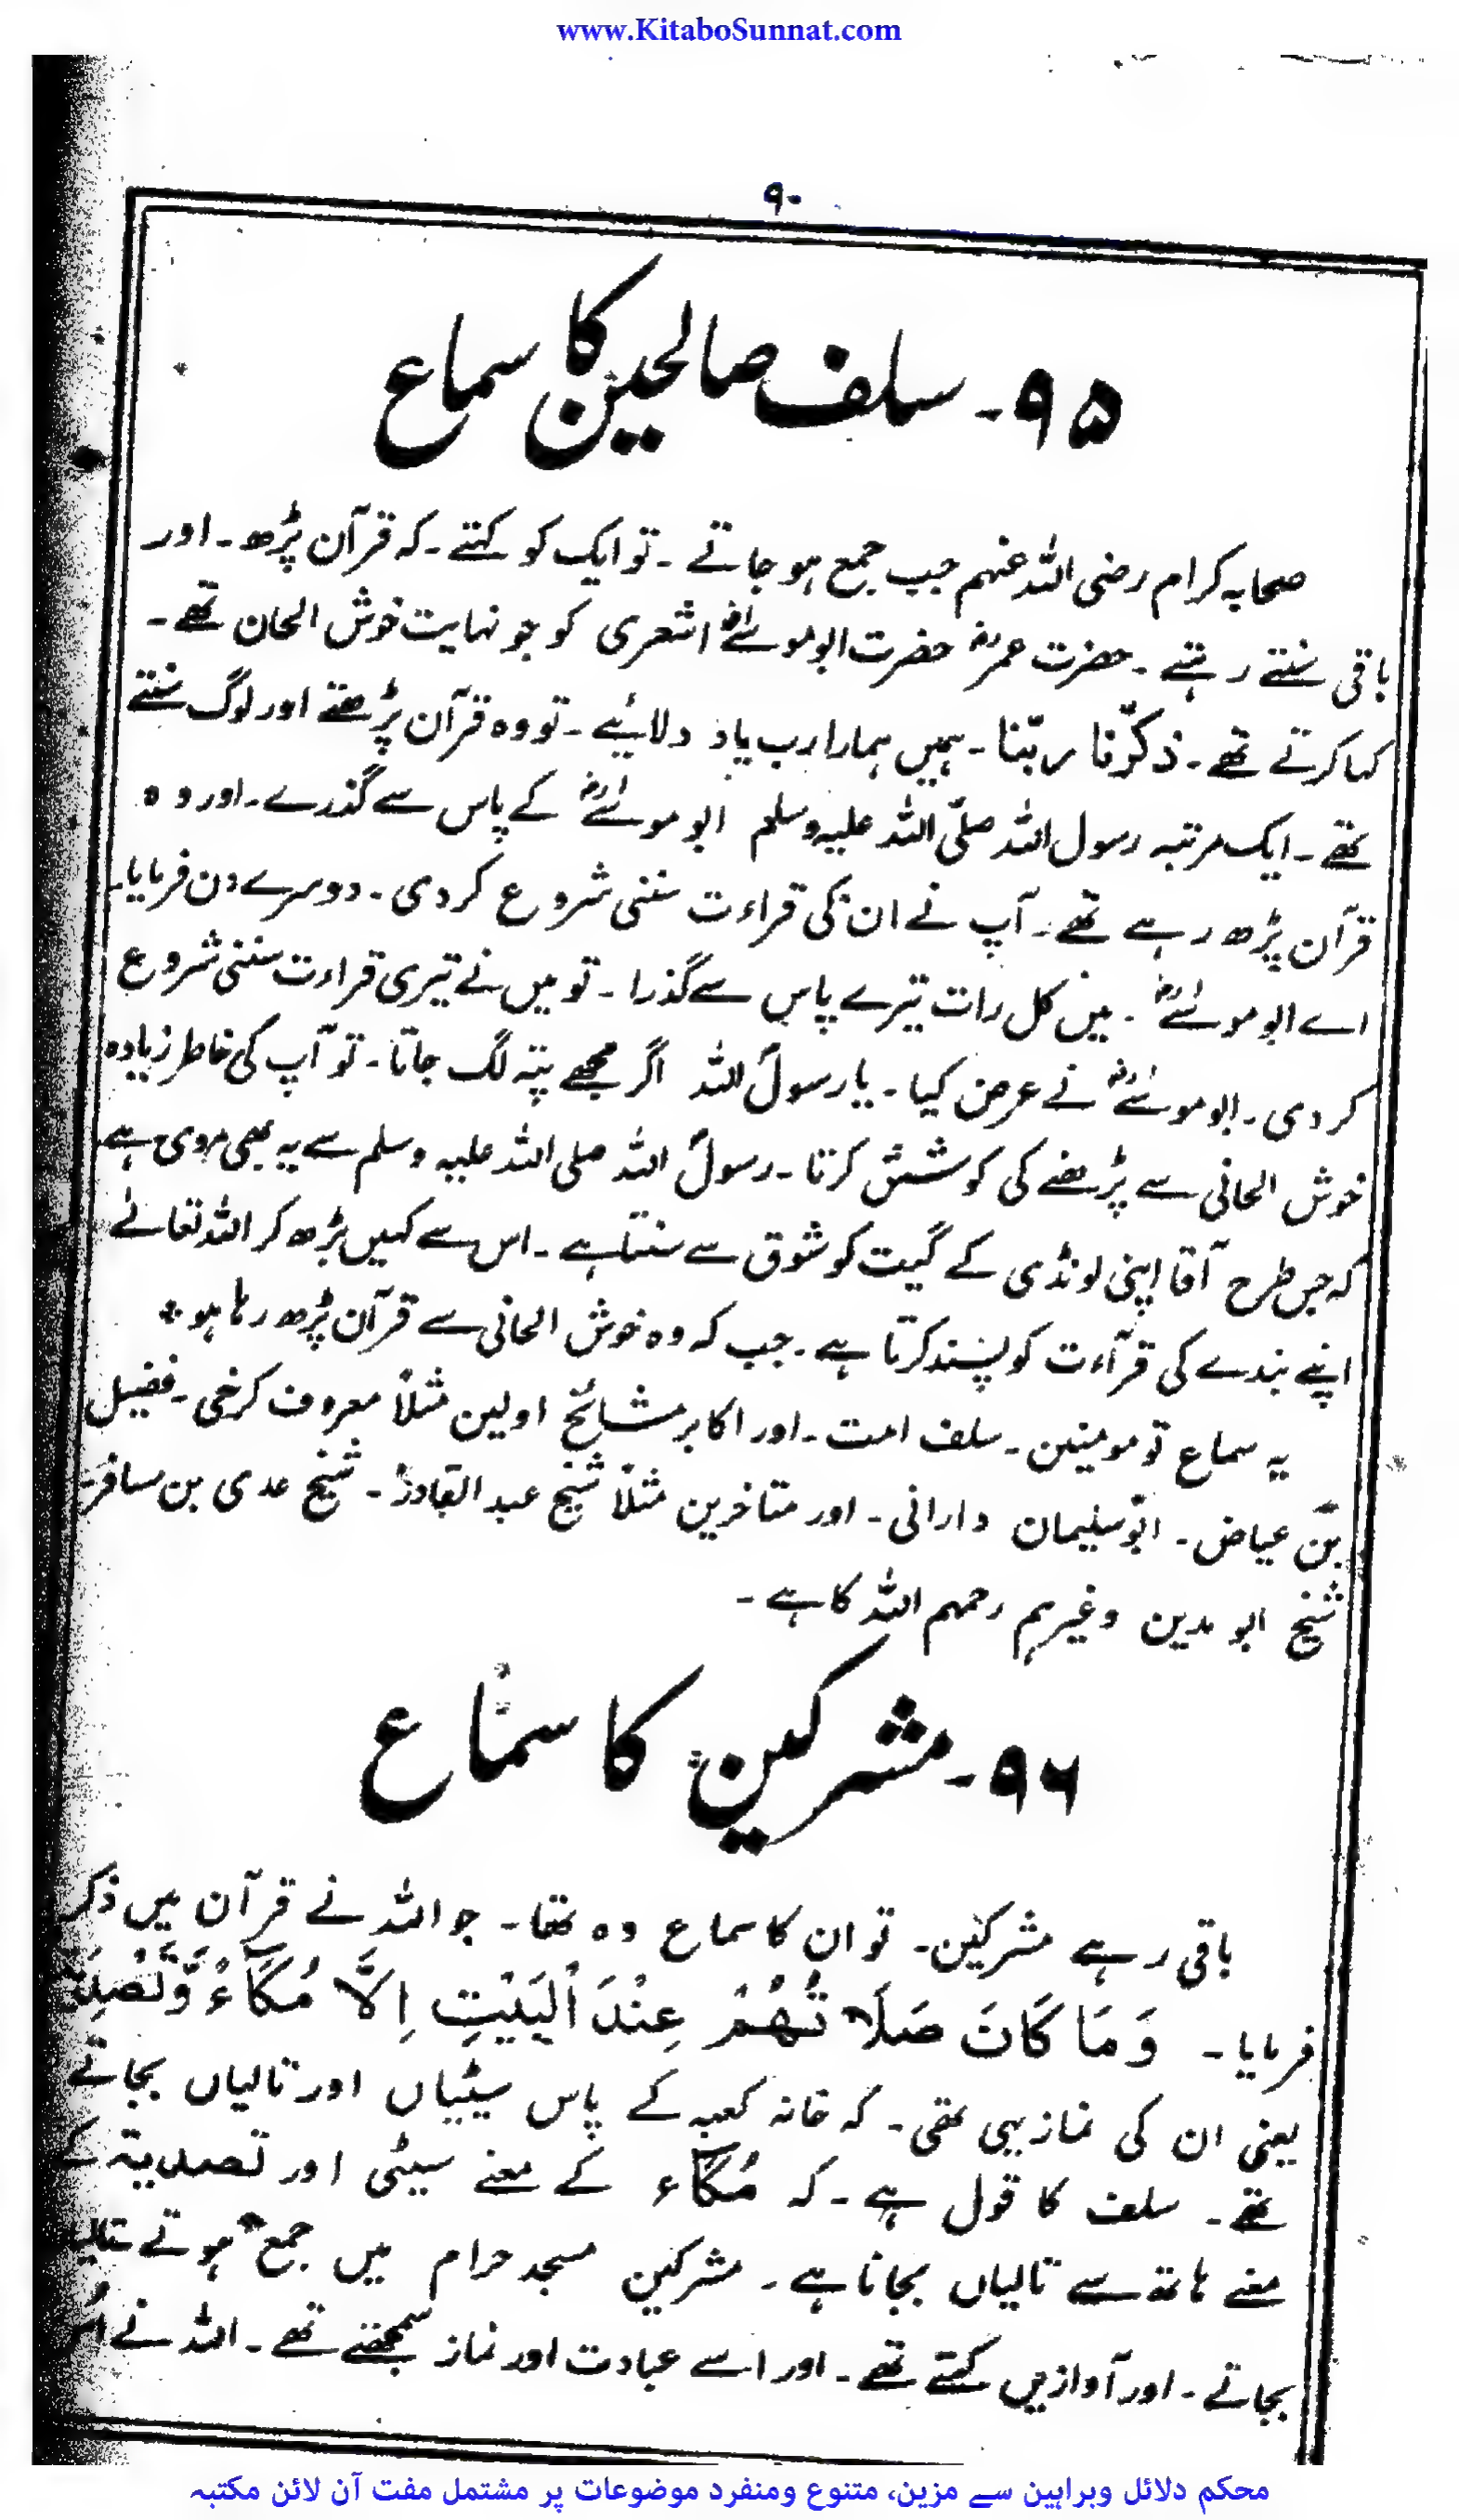 www.KitaboSunnat.com
۹۰
۹۵۔ سلف صالحین کا سماع
صحابہ کرام رضی اللہ عنہم جب جمع ہو جاتے ۔ تو ایک کو کہتے ۔ کہ قرآن پڑھ ۔ اور
باقی سنتے رہتے ۔ حضرت عمرؓ حضرت ابو موسےٰؓ اشعری کو جو نہایت خوش الحان تھے ۔
کہا کرتے تھے ۔ ذکّرنا ربّنا ۔ ہمیں ہمارا رب یاد دلائیے ۔ تو وہ قرآن پڑھتے اور لوگ سنتے
تھے ۔ ایک مرتبہ رسول اللہ صلّی اللہ علیہ وسلم ابو موسےٰؓ کے پاس سے گذرے ۔ اور وہ
قرآن پڑھ رہے تھے ۔ آپ نے ان کی قراءت سننی شروع کر دی ۔ دوسرے دن فرمایا ۔
اے ابو موسےٰؓ ۔ میں کل رات تیرے پاس سے گذرا ۔ تو میں نے تیری قراءت سننی شروع
کر دی ۔ ابو موسےٰؓ نے عرض کیا ۔ یا رسولؐ اللہ اگر مجھے پتہ لگ جاتا ۔ تو آپ کی خاطر زیادہ
خوش الحانی سے پڑھنے کی کوشش کرتا ۔ رسولؐ اللہ صلی اللہ علیہ وسلم سے یہ بھی مروی ہے
کہ جس طرح آقا اپنی لونڈی کے گیت کو شوق سے سنتا ہے ۔ اس سے کہیں بڑھ کر اللہ تعالےٰ
اپنے بندے کی قرآءت کو پسند کرتا ہے ۔ جب کہ وہ خوش الحانی سے قرآن پڑھ رہا ہو ۔
یہ سماع تو مومنین ۔ سلف امت ۔ اور اکابر مشائخ اولین مثلاً معروف کرخی ۔ فضیل
بن عیاض ۔ ابو سلیمان دارانی ۔ اور متاخرین مثلاً شیخ عبد القادرؒ ۔ شیخ عدی بن مسافرؒ
شیخ ابو مدین وغیرہم رحمہم اللہ کا ہے ۔
۹۶۔ مشرکین کا سماع
باقی رہے مشرکین ۔ تو ان کا سماع وہ تھا ۔ جو اللہ نے قرآن میں ذکر
فرمایا ۔ وَمَا كَانَ صَلَاتُهُمْ عِنْدَ الْبَيْتِ اِلَّا مُكَآءً وَّتَصْدِيَةً
یعنی ان کی نماز یہی تھی ۔ کہ خانہ کعبہ کے پاس سیٹیاں اور تالیاں بجاتے
تھے ۔ سلف کا قول ہے ۔ کہ مُكَآء کے معنے سیٹی اور تصدیۃ کے
معنے ہاتھ سے تالیاں بجانا ہے ۔ مشرکین مسجد حرام میں جمع ہوتے
بجاتے ۔ اور آوازیں کہتے تھے ۔ اور اسے عبادت اور نماز سمجھتے تھے ۔ اللہ نے
محکم دلائل وبراہین سے مزین، متنوع ومنفرد موضوعات پر مشتمل مفت آن لائن مکتبہ